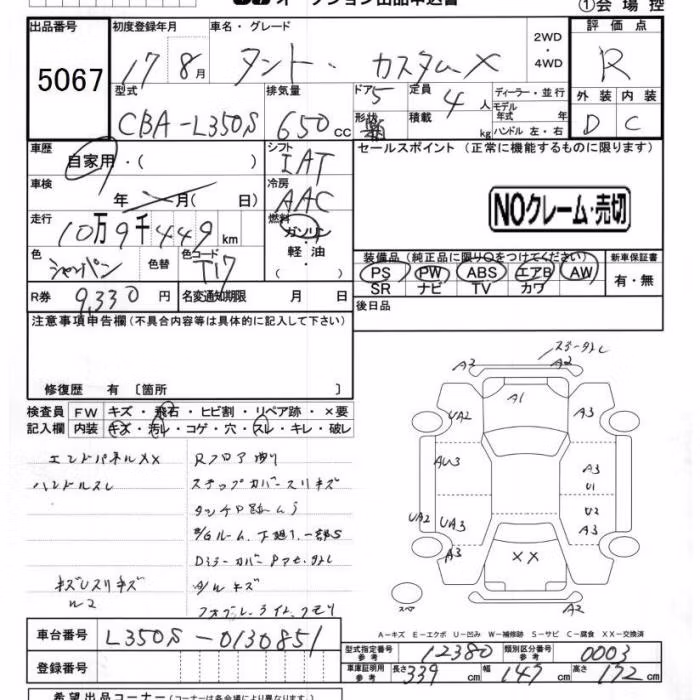 オークション出品申込書 ①会場控
出品番号 初度登録年月 車名・グレード 2WD ・ 4WD 評価点
5067 17 8月 タント・カスタムX R
型式 排気量 ドア 定員 ディーラー・並行 外装 内装
CBA-L350S 650cc 5 4人 モデル年式 年式 D C
形状 積載 kg ハンドル 左・右
車歴 シフト セールスポイント (正常に機能するものに限ります)
自家用・( ) IAT
車検 冷房
年 月( 日) AAC NOクレーム・売切
走行 燃料
10万9千449km ガソリン
色 色替 色コード 軽油
シャンパン T17 装備品(純正品に限り○をつけてください) 新車保証書
PS PW ABS エアB AW 有・無
SR ナビ TV カワ
R券 9,330円 名変通知期限 月 日 後日品
注意事項申告欄(不具合内容等は具体的に記入して下さい)
修復歴 有 〔箇所 〕
検査員 FW キズ・飛石・ヒビ割・リペア跡・×要
記入欄 内装 キズ・汚レ・コゲ・穴・スレ・キレ・破レ
エンドパネルXX Rフロア
ハンドルスレ ステップカバースリキズ
キズレスリキズ A/Wキズ
A2 A2
A1
UA2 A3
AU3 A3
U1
U2
UA2 UA3 A3
A3 XX
スペア A2
A-キズ E-エクボ U-凹み W-補修跡 S-サビ C-腐食 XX-交換済
車台番号 L350S-0130851
型式指定番号 参考 12380 類別区分番号 参考 0003
登録番号 車庫証明用 参考 長さ339cm 幅147cm 高さ172cm
希望出品コーナー(コーナーは各会場により異なります。)